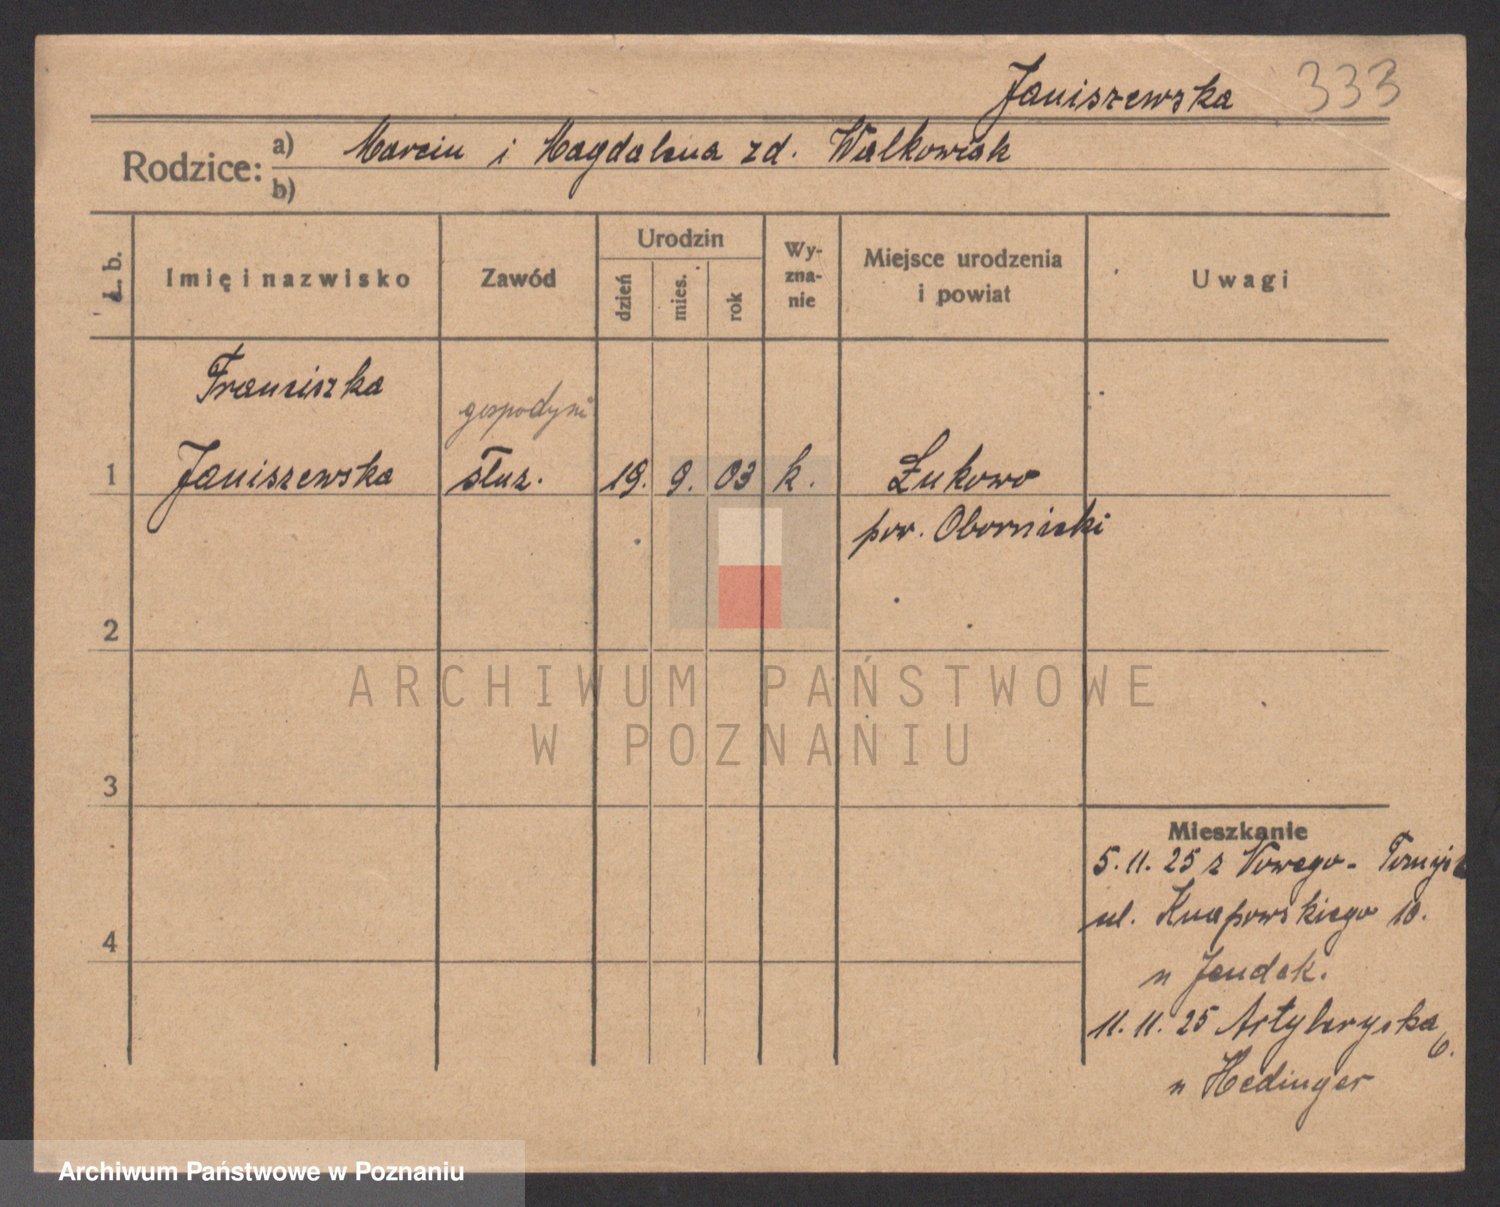 Janiszewska 333
Rodzice: a) Marcin i Magdalena zd. Walkowiak
b)
L. b. Imię i nazwisko Zawód Urodzin dzień mies. rok Wy-zna-nie Miejsce urodzenia i powiat Uwagi
Franciszka
gospodyni
1 Janiszewska służ. 19. 9. 03 k. Łukowo
pow. Obornicki
2
ARCHIWUM PAŃSTWOWE
W POZNANIU
3
Mieszkanie
5.11.25 z Nowego-Tomyśl
ul. Knapowskiego 10.
4
n Jendek.
11.11.25 Artyleryska 6.
n Hedinger
Archiwum Państwowe w Poznaniu